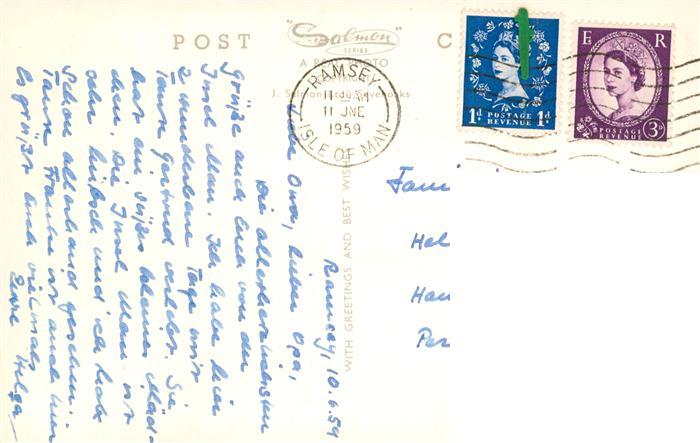 POST C
"Salmon"
SERIES
A REAL PHOTO
J. Salmon Ltd. Sevenoaks
RAMSEY
11 JNE
1959
ISLE OF MAN
1d POSTAGE REVENUE 1d
E R
POSTAGE REVENUE 3D
WITH GREETINGS AND BEST WISHES
Ramsey, 10.6.59
Liebe Oma, lieber Opa,
Die allerherzlichsten
Grüße auch Euch von der
Insel Man. Ich habe hier
2 wunderbare Tage mit
Tante Gertrud verlebt. Sie
ist ein süßes kleines Mäd-
chen. Die Insel Man ist
sehr hübsch und ich habe
schon allerhand gesehen.
Tante Frauke ist auch hier
Es grüßt Euch vielmals
Eure Helga
Fami
Hel
Han
Per